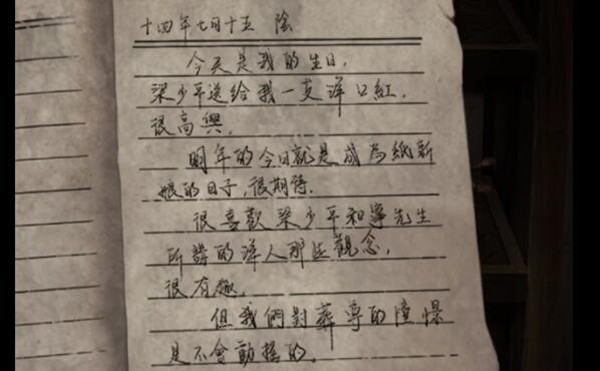 十四年七月十五 陰
今天是我的生日,
梁少平送給我一支洋口紅,
很高興。
明年的今日就是成為紙新
娘的日子,很期待.
很喜歡梁少平和寧先生
所講的洋人那些觀念,
很有趣。
但我們對葬尊的憧憬
是不會動搖的。